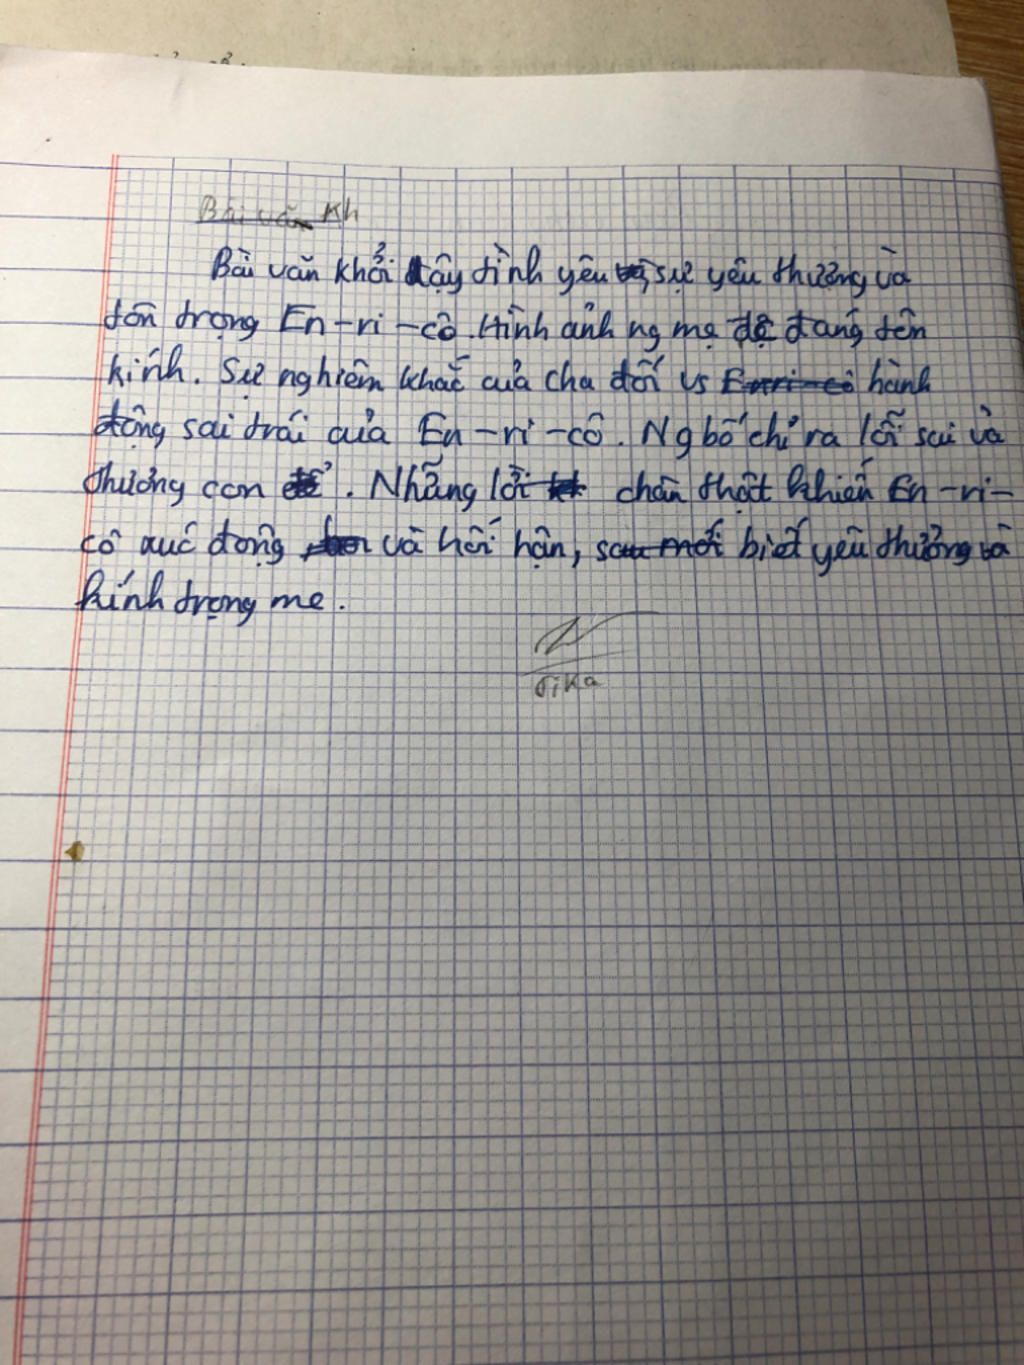 Bài văn Kh
Bài văn khởi dậy tình yêu sự yêu thương và
tôn trọng En-ri-cô. Hình ảnh ng mẹ đáng tôn
kính. Sự nghiêm khắc của cha đối vs En-ri-cô hành
động sai trái của En-ri-cô. Ng bố chỉ ra lỗi sai và
thương con. Những lời chân thật khiến En-ri-
cô xúc động và hối hận, sau mới biết yêu thương và
kính trọng mẹ.
Tika